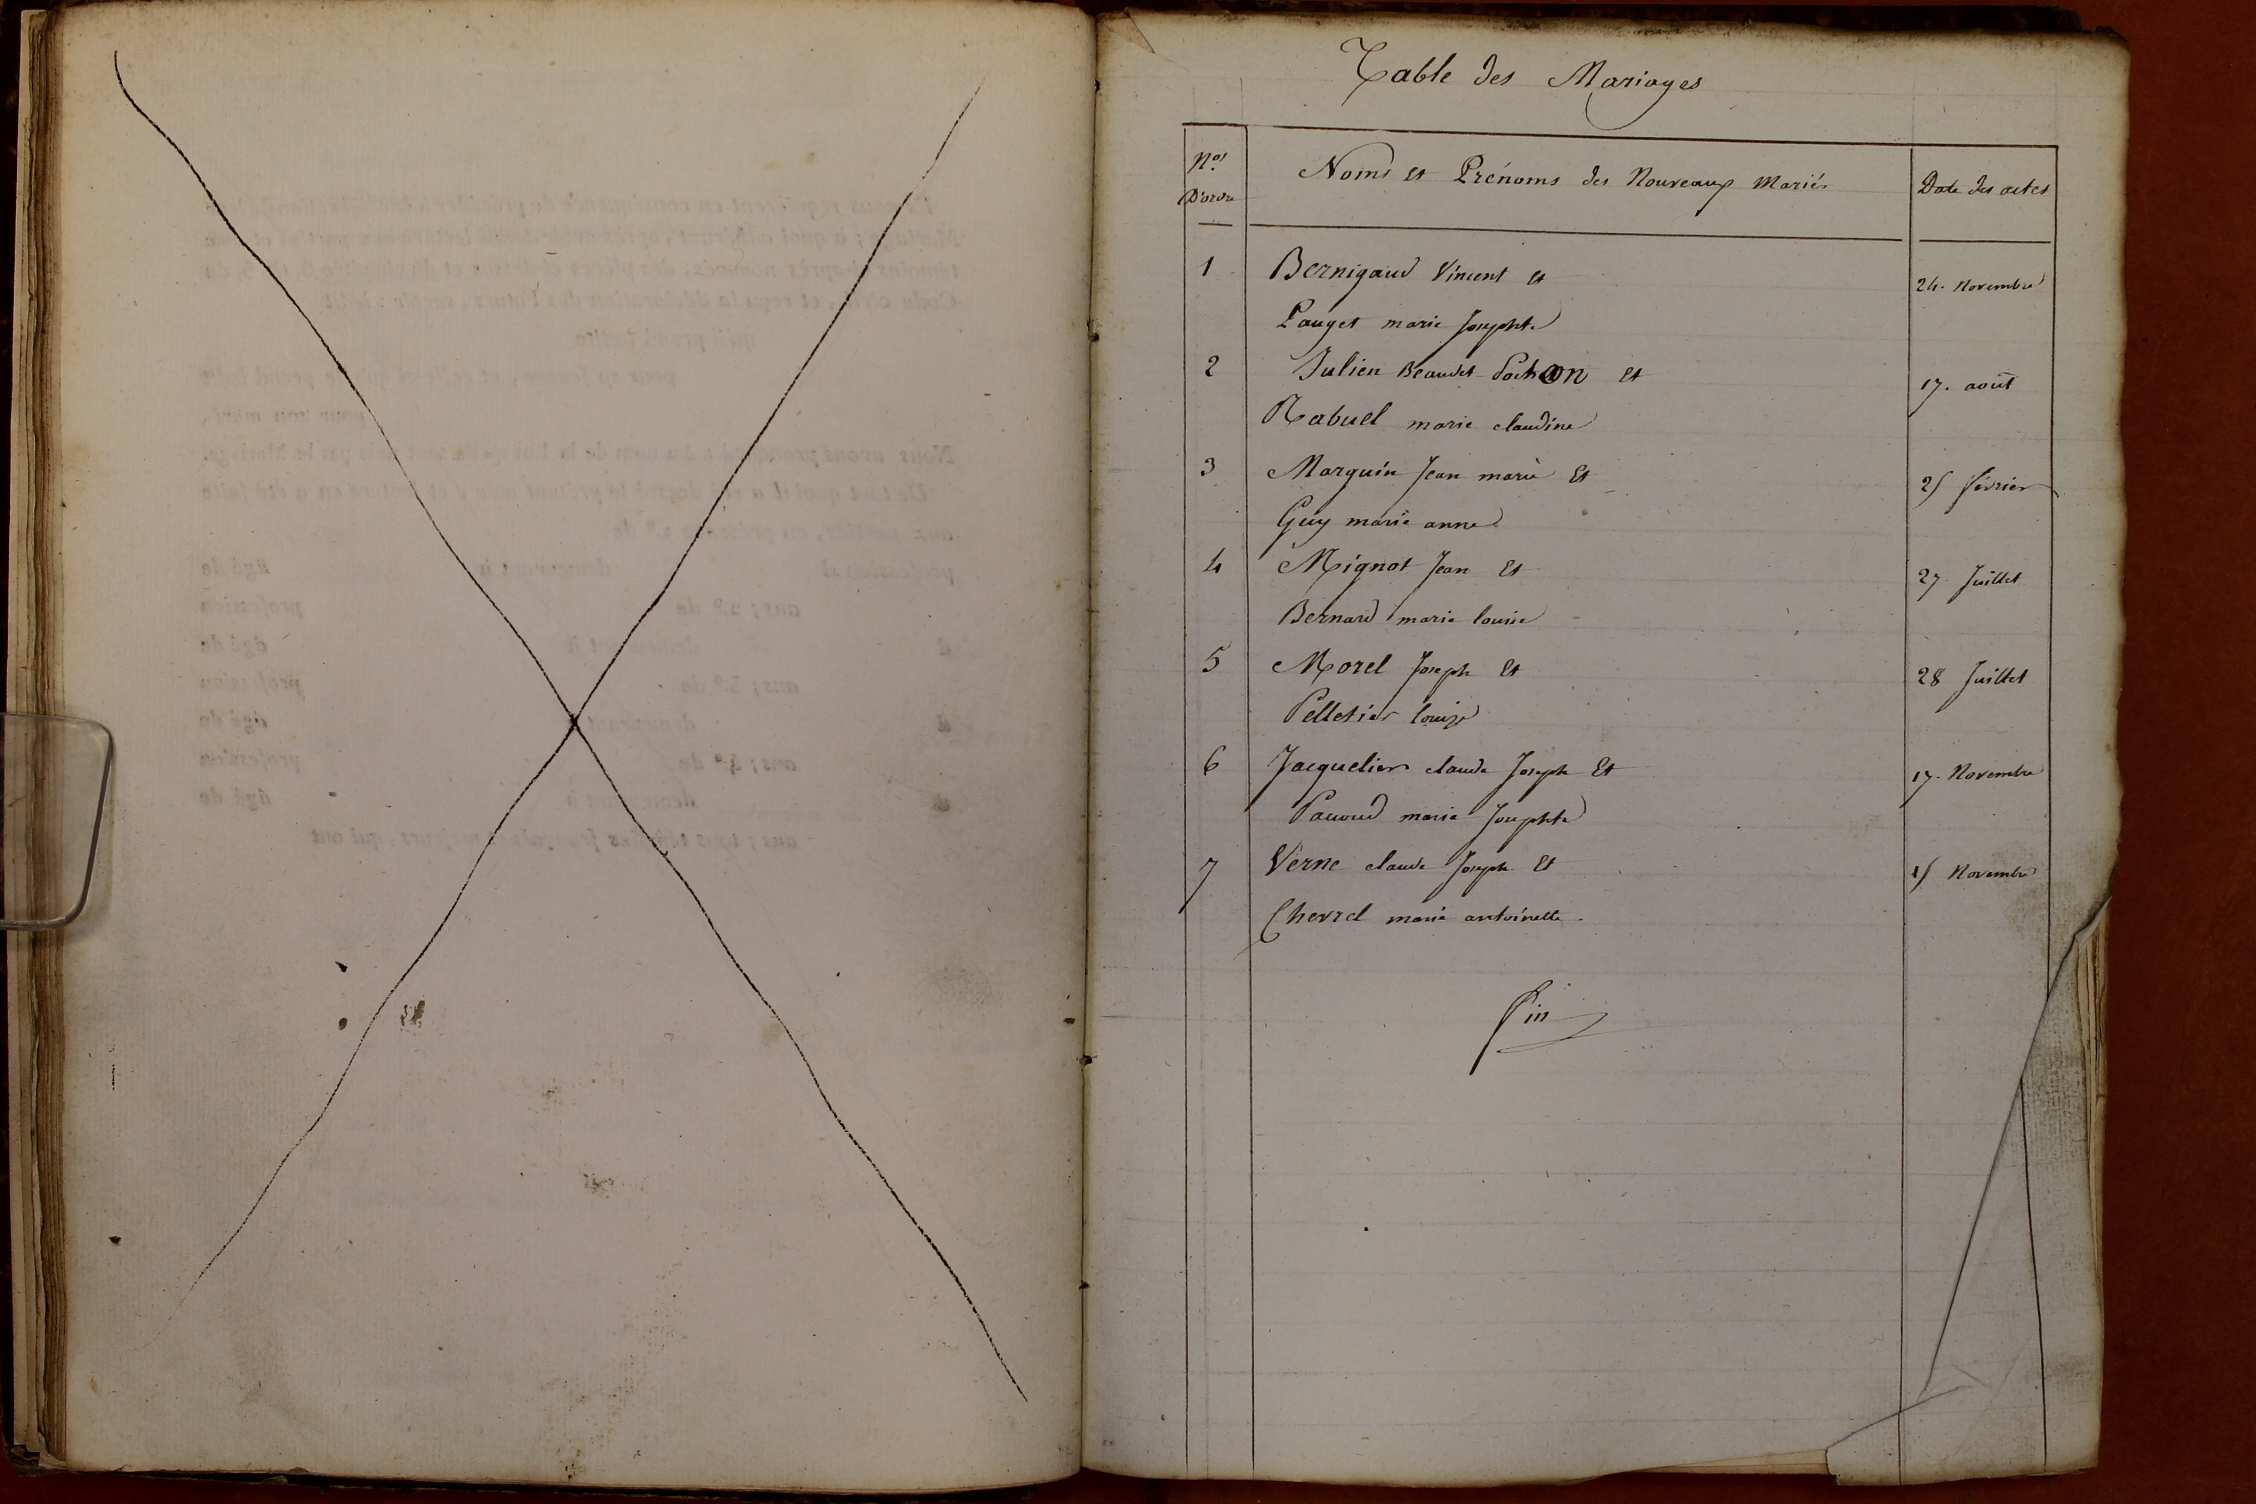 Table des Mariages
Nos
D'ordre
Noms et Prénoms des Nouveaux Mariés
Date des actes
1 Bernigaud Vincent et 24. Novembre
Pauget marie Josephte
2 Julien Beaudet et 17. août
Rabuel marie claudine
3 Marguin Jean marie Et 25 février
Guy marie anne
4 Mignot Jean Et 27 Juillet
Bernard marie louise
5 Morel Joseph Et 28 Juillet
Pelletier louise
6 Jacquelier claude Joseph Et 17. Novembre
marie Josephte
7 Verne claude Joseph Et 15 Novembre
Chevrel marie antoinette.
Fin